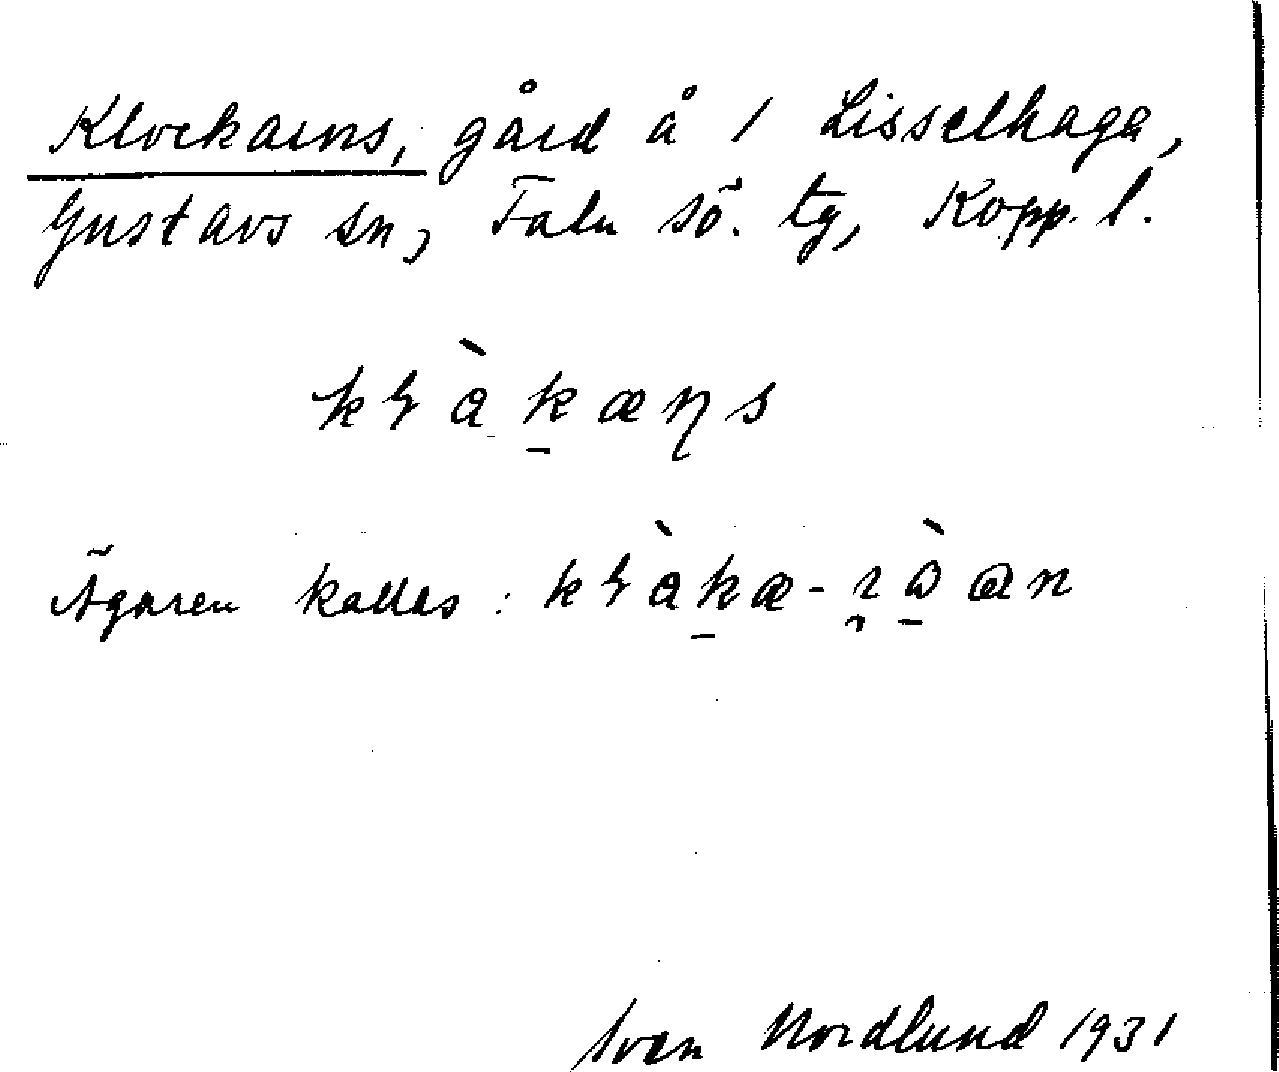 Klockarns, gård å 1 Lisselhaga,
Gustavs sn, Falu sö. tg, Kopp. l.
Ägaren kallas:
Sven Nordlund 1931